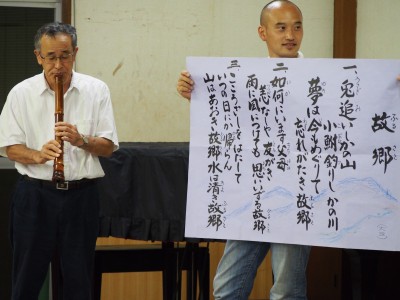 故郷
ふるさと
一 兎追いしかの山
小鮒釣りしかの川
夢は今もめぐりて
忘れがたき故郷
二 如何にいます父母
恙なしや友がき
雨に風につけても
思いいずる故郷
三 こころざしをはたして
いつの日にか帰らん
山はあおき故郷
水は清き故郷